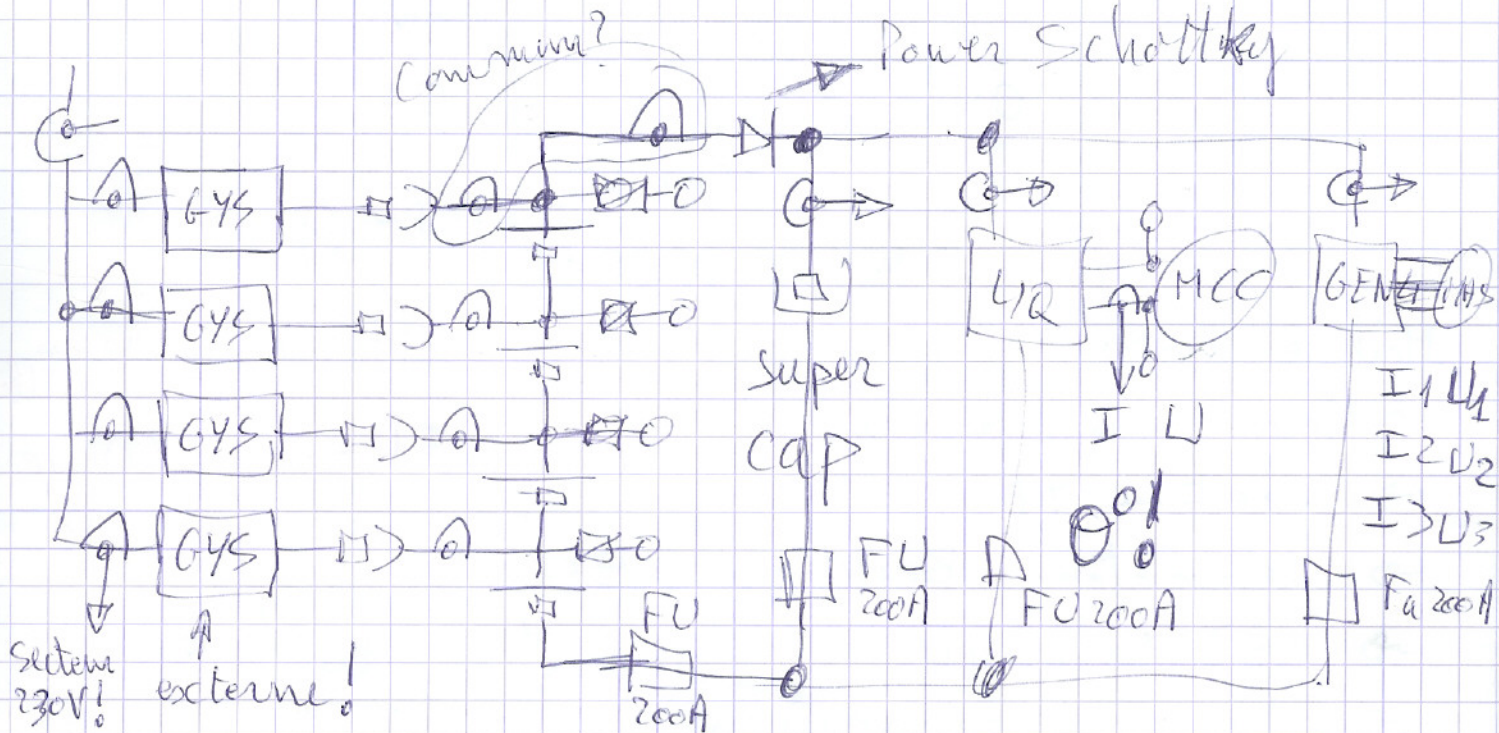 Commun?
Power Schottky
GYS
GYS
GYS
GYS
4Q
MCC
GEN4
MAS
super
cap
I U
I1 U1
I2 U2
I3 U3
θ°!
FU
200A
FU 200A
Fu 200A
FU
200A
secteur
230V!
externe!